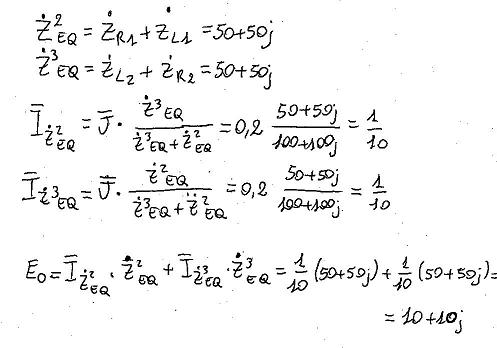 Ż²EQ = ŻR1 + ŻL1 = 50+50j
Ż³EQ = ŻL2 + ŻR2 = 50+50j
Īż²EQ = J̄ · ż³EQ / (ż³EQ + ż²EQ) = 0,2 (50+50j) / (100+100j) = 1/10
Īż³EQ = J̄ · ż²EQ / (ż³EQ + ż²EQ) = 0,2 (50+50j) / (100+100j) = 1/10
E0 = Īż²EQ · Ż²EQ + Īż³EQ · Ż³EQ = 1/10 (50+50j) + 1/10 (50+50j) =
= 10+10j